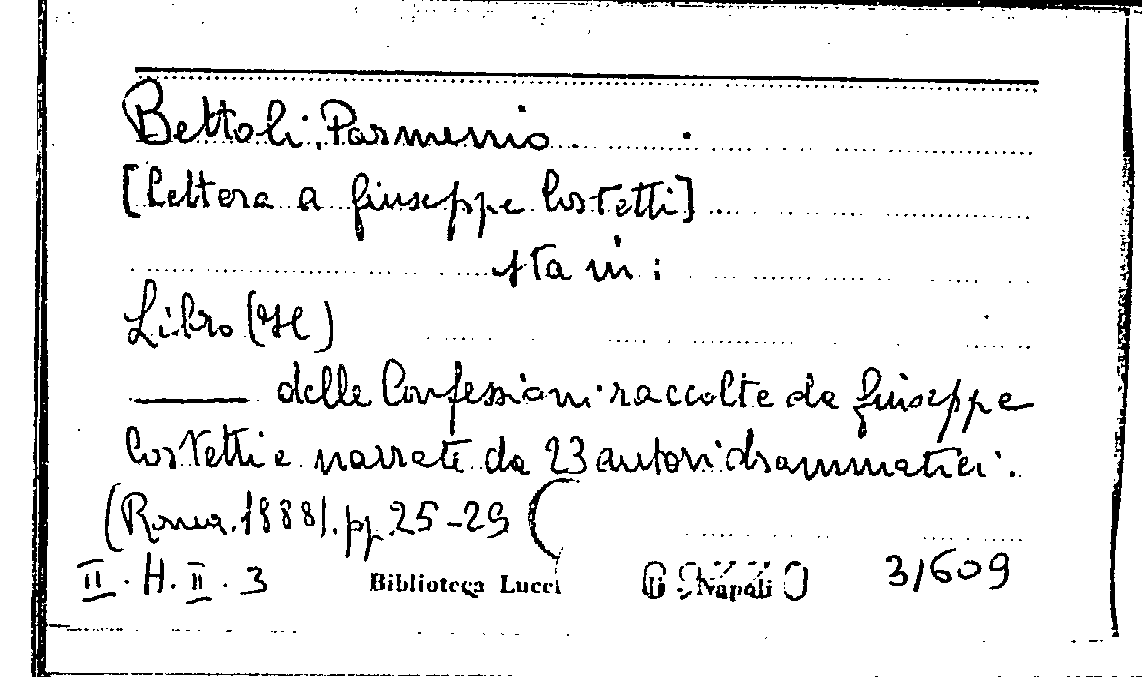 Bettoli, Parmenio
[Lettera a Giuseppe Costetti]
sta in:
Libro (Il)
——— delle Confessioni raccolte da Giuseppe
Costetti e narrate da 23 autori drammatici.
(Roma. 1888). pp. 25-29
II. H. II. 3 Biblioteca Lucci di Napoli 31609